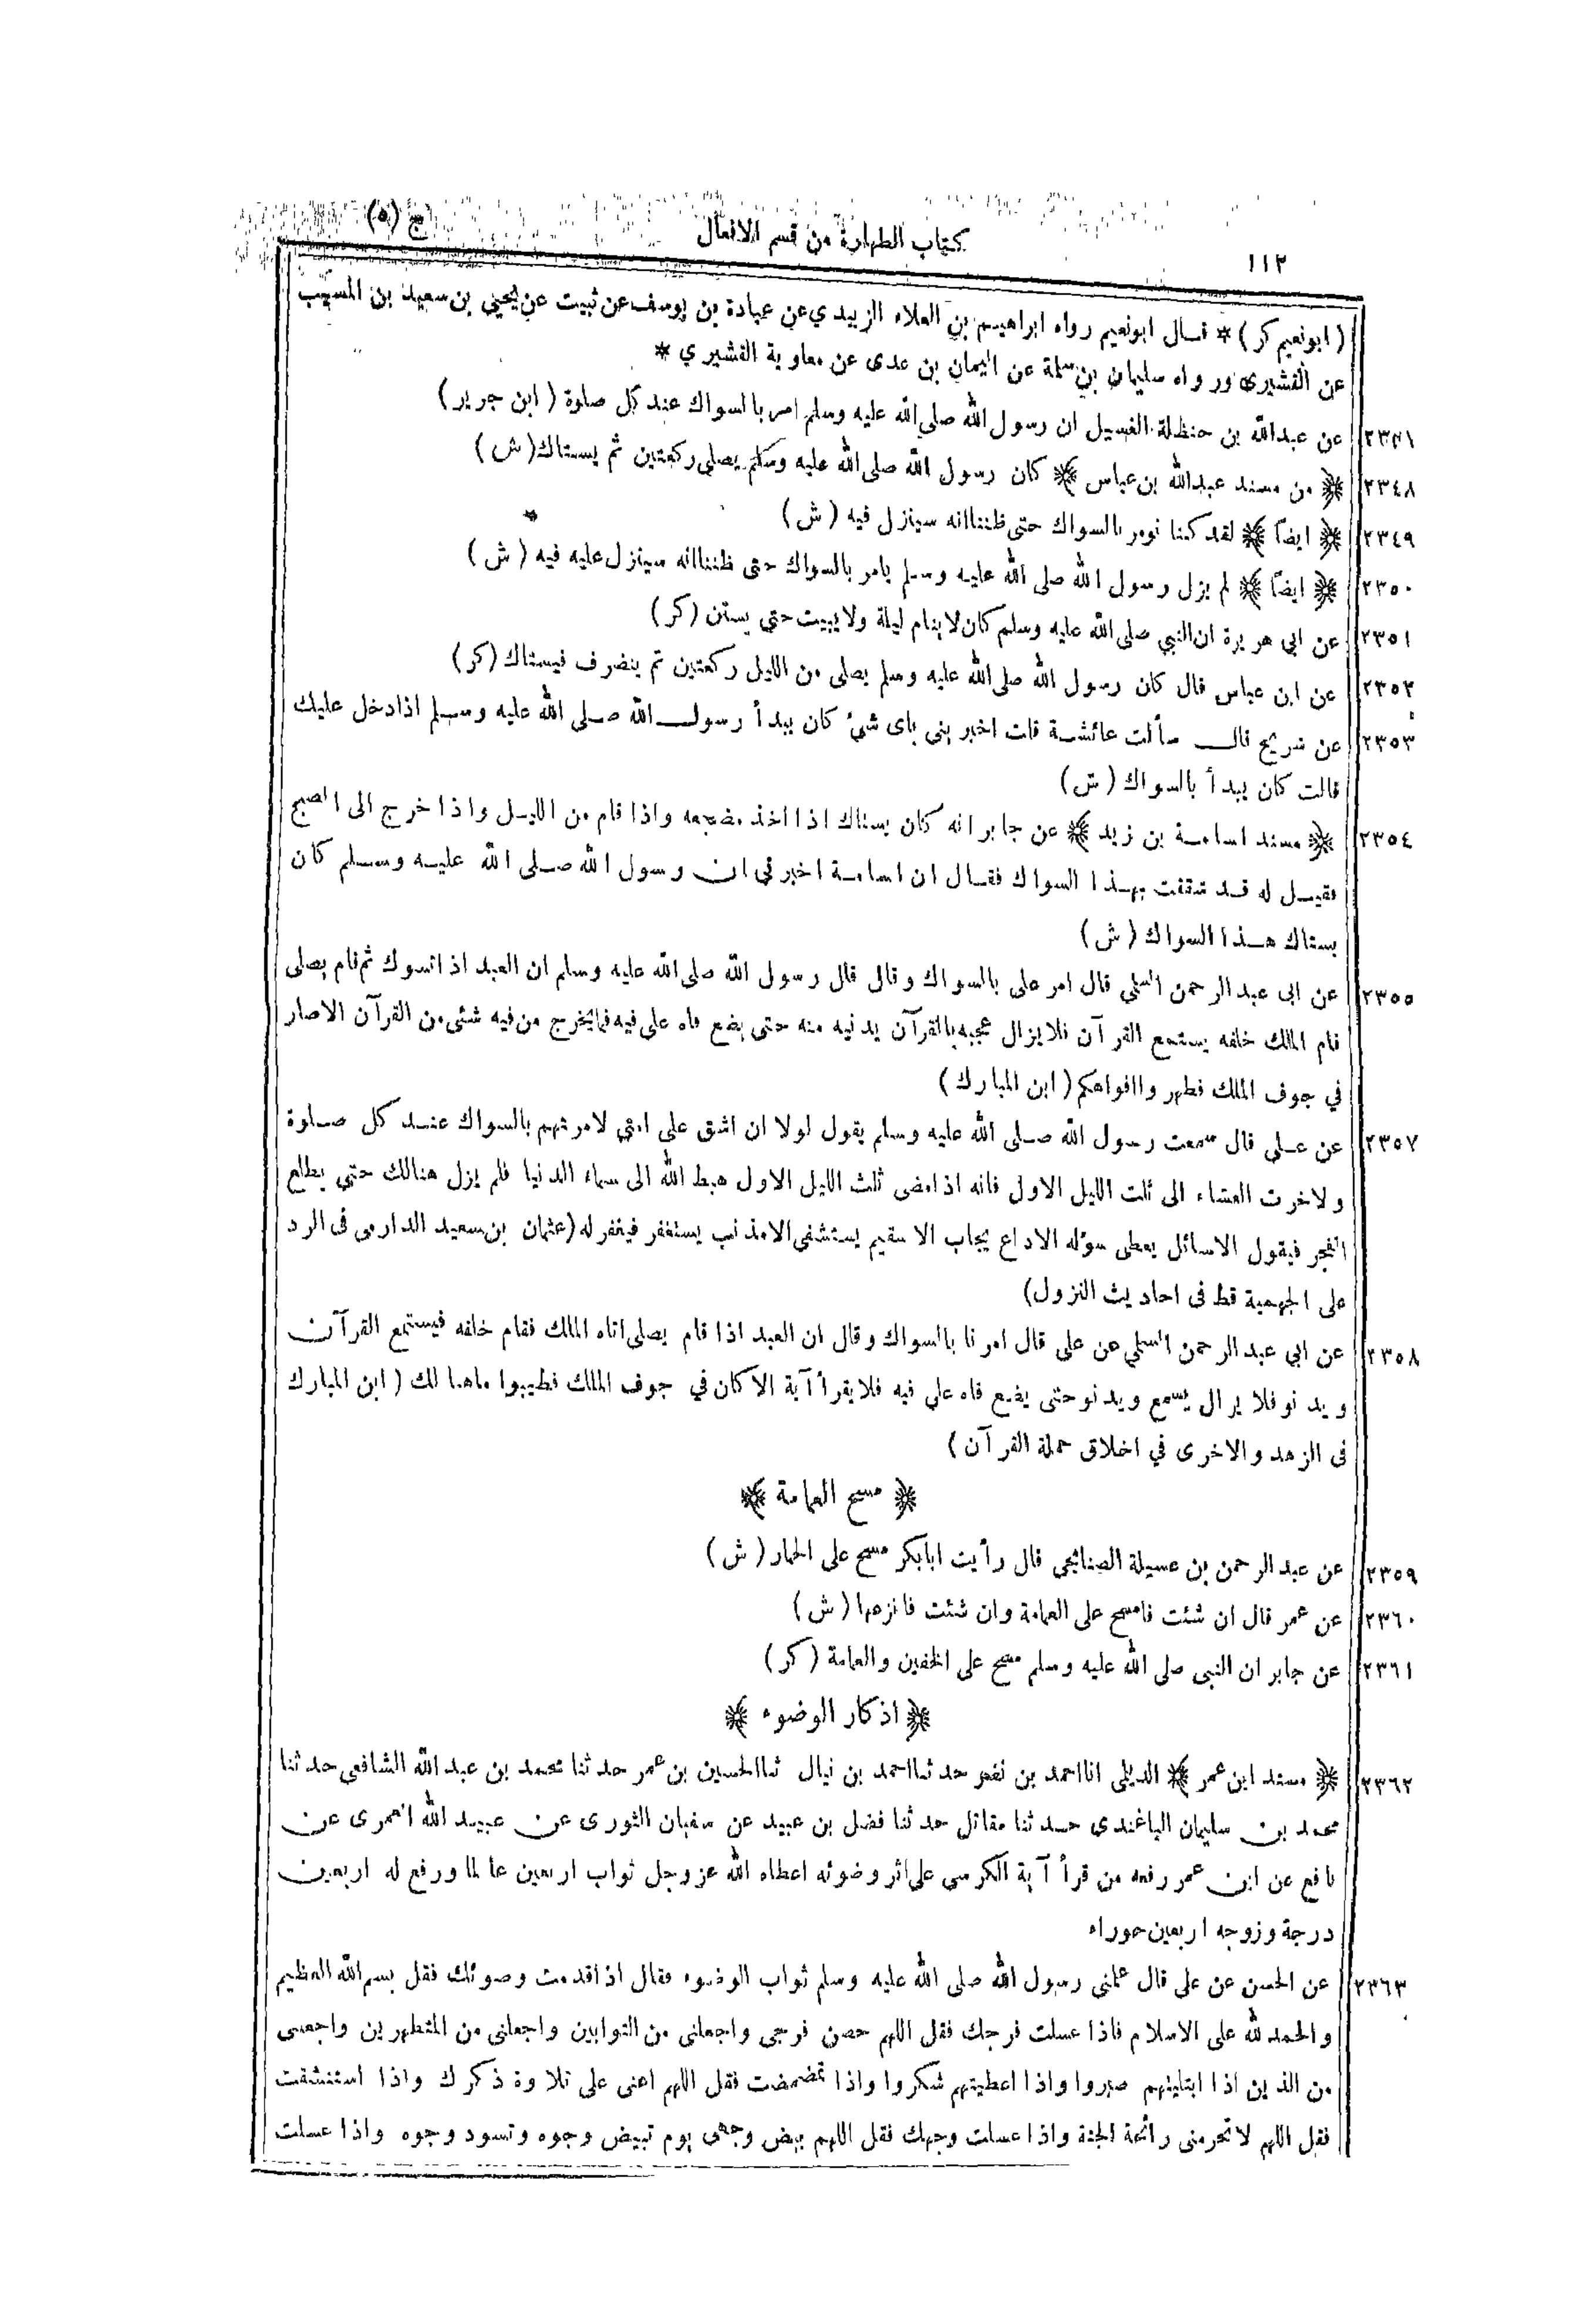 ١١٢
كتاب الطهارة من قسم الافعال
ج (٥)
( ابونعيم كر ) * قال ابونعيم رواه ابراهيم بن العلاء الزبيدي عن عبادة بن يوسف عن ثبيت عن يحيي بن سعيد بن المسيب
عن القشيرى ورواه سليمان بن سلمة عن اليمان بن عدى عن معاوية القشيري *
عن عبدالله بن حنظلة الغسيل ان رسول الله صلى الله عليه وسلم امر بالسواك عند كل صلوة ( ابن جرير )
٢٣٤٨ ﴿ من مسند عبدالله بن عباس ﴾ كان رسول الله صلى الله عليه وسلم يصلى ركعتين ثم يستاك (ش)
٢٣٤٩ ﴿ ايضاً ﴾ لقد كنا نومر بالسواك حتى ظننا انه سينزل فيه ( ش )
٢٣٥٠ ﴿ ايضاً ﴾ لم يزل رسول الله صلى الله عليه وسلم يامر بالسواك حتى ظننا انه سينزل عليه فيه ( ش )
٢٣٥١ عن ابي هريرة ان النبي صلى الله عليه وسلم كان لا ينام ليلة ولا يبيت حتي يستن (كر)
٢٣٥٢ عن ابن عباس قال كان رسول الله صلى الله عليه وسلم يصلى من الليل ركعتين ثم ينصرف فيستاك (كر)
٢٣٥٣ عن شريح قال سألت عائشة قلت اخبريني باى شئ كان يبدأ رسول الله صلى الله عليه وسلم اذا دخل عليك
قالت كان يبدأ بالسواك ( ش )
٢٣٥٤ ﴿ مسند اسامة بن زيد ﴾ عن جابر انه كان يستاك اذا اخذ مضجعه واذا قام من الليل واذا خرج الى الصبح
فقيل له قد شققت بهذا السواك فقال ان اسامة اخبرني ان رسول الله صلى الله عليه وسلم كان
يستاك هذا السواك ( ش )
٢٣٥٥ عن ابى عبد الرحمن السلمي قال امر على بالسواك وقال قال رسول الله صلى الله عليه وسلم ان العبد اذا تسوك ثم قام يصلى
قام الملك خلفه يستمع القرآن فلا يزال عجبه بالقرآن يدنيه منه حتى يضع فاه على فيه فما يخرج من فيه شئى من القرآن الا صار
في جوف الملك فطهروا افواهكم ( ابن المبارك )
٢٣٥٧ عن علي قال سمعت رسول الله صلى الله عليه وسلم يقول لولا ان اشق على امتي لامرتهم بالسواك عند كل صلوة
ولاخرت العشاء الى ثلث الليل الاول فانه اذا مضى ثلث الليل الاول هبط الله الى سماء الدنيا فلم يزل هنالك حتي يطلع
الفجر فيقول الا سائل يعطى سؤله الا داع يجاب الا سقيم يستشفى الا مذنب يستغفر فيغفر له (عثمان بن سعيد الدارمى فى الرد
على الجهمية قط فى احاديث النزول)
٢٣٥٨ عن ابي عبد الرحمن السلمي عن علي قال امرنا بالسواك وقال ان العبد اذا قام يصلى اتاه الملك فقام خلفه فيستمع القرآن
ويدنو فلا يزال يسمع ويدنو حتى يضع فاه علي فيه فلا يقرأ آية الا كان في جوف الملك فطيبوا ما هنا لك ( ابن المبارك
فى الزهد والاخرى في اخلاق حملة القرآن )
﴿ مسح العمامة ﴾
٢٣٥٩ عن عبد الرحمن بن عسيلة الصنابحى قال رأيت ابابكر مسح على الخمار ( ش )
٢٣٦٠ عن عمر قال ان شئت فامسح على العمامة وان شئت فانزعها ( ش )
٢٣٦١ عن جابر ان النبى صلى الله عليه وسلم مسح على الخفين والعمامة ( كر )
﴿ اذكار الوضوء ﴾
٢٣٦٢ ﴿ مسند ابن عمر ﴾ الديلمى انا احمد بن نصر حدثنا احمد بن نيال ثنا الحسين بن عمر حدثنا محمد بن عبد الله الشافعى حدثنا
محمد بن سليمان الباغندى حدثنا مقاتل حدثنا فضل بن عبيد عن سفيان الثورى عن عبيد الله العمرى عن
نافع عن ابن عمر رفعه من قرأ آية الكرسى على اثر وضوئه اعطاه الله عز وجل ثواب اربعين عالما ورفع له اربعين
درجة وزوجه اربعين حوراء
٢٣٦٣ عن الحسن عن على قال علمنى رسول الله صلى الله عليه وسلم ثواب الوضوء فقال اذا قدمت وضوئك فقل بسم الله العظيم
والحمد لله على الاسلام فاذا غسلت فرجك فقل اللهم حصن فرجى واجعلنى من التوابين واجعلنى من المتطهرين واجعلنى
من الذين اذا ابتليتهم صبروا واذا اعطيتهم شكروا واذا تمضمضت فقل اللهم اعنى على تلاوة ذكرك واذا استنشقت
فقل اللهم لا تحرمنى رائحة الجنة واذا غسلت وجهك فقل اللهم بيض وجهى يوم تبيض وجوه وتسود وجوه واذا غسلت